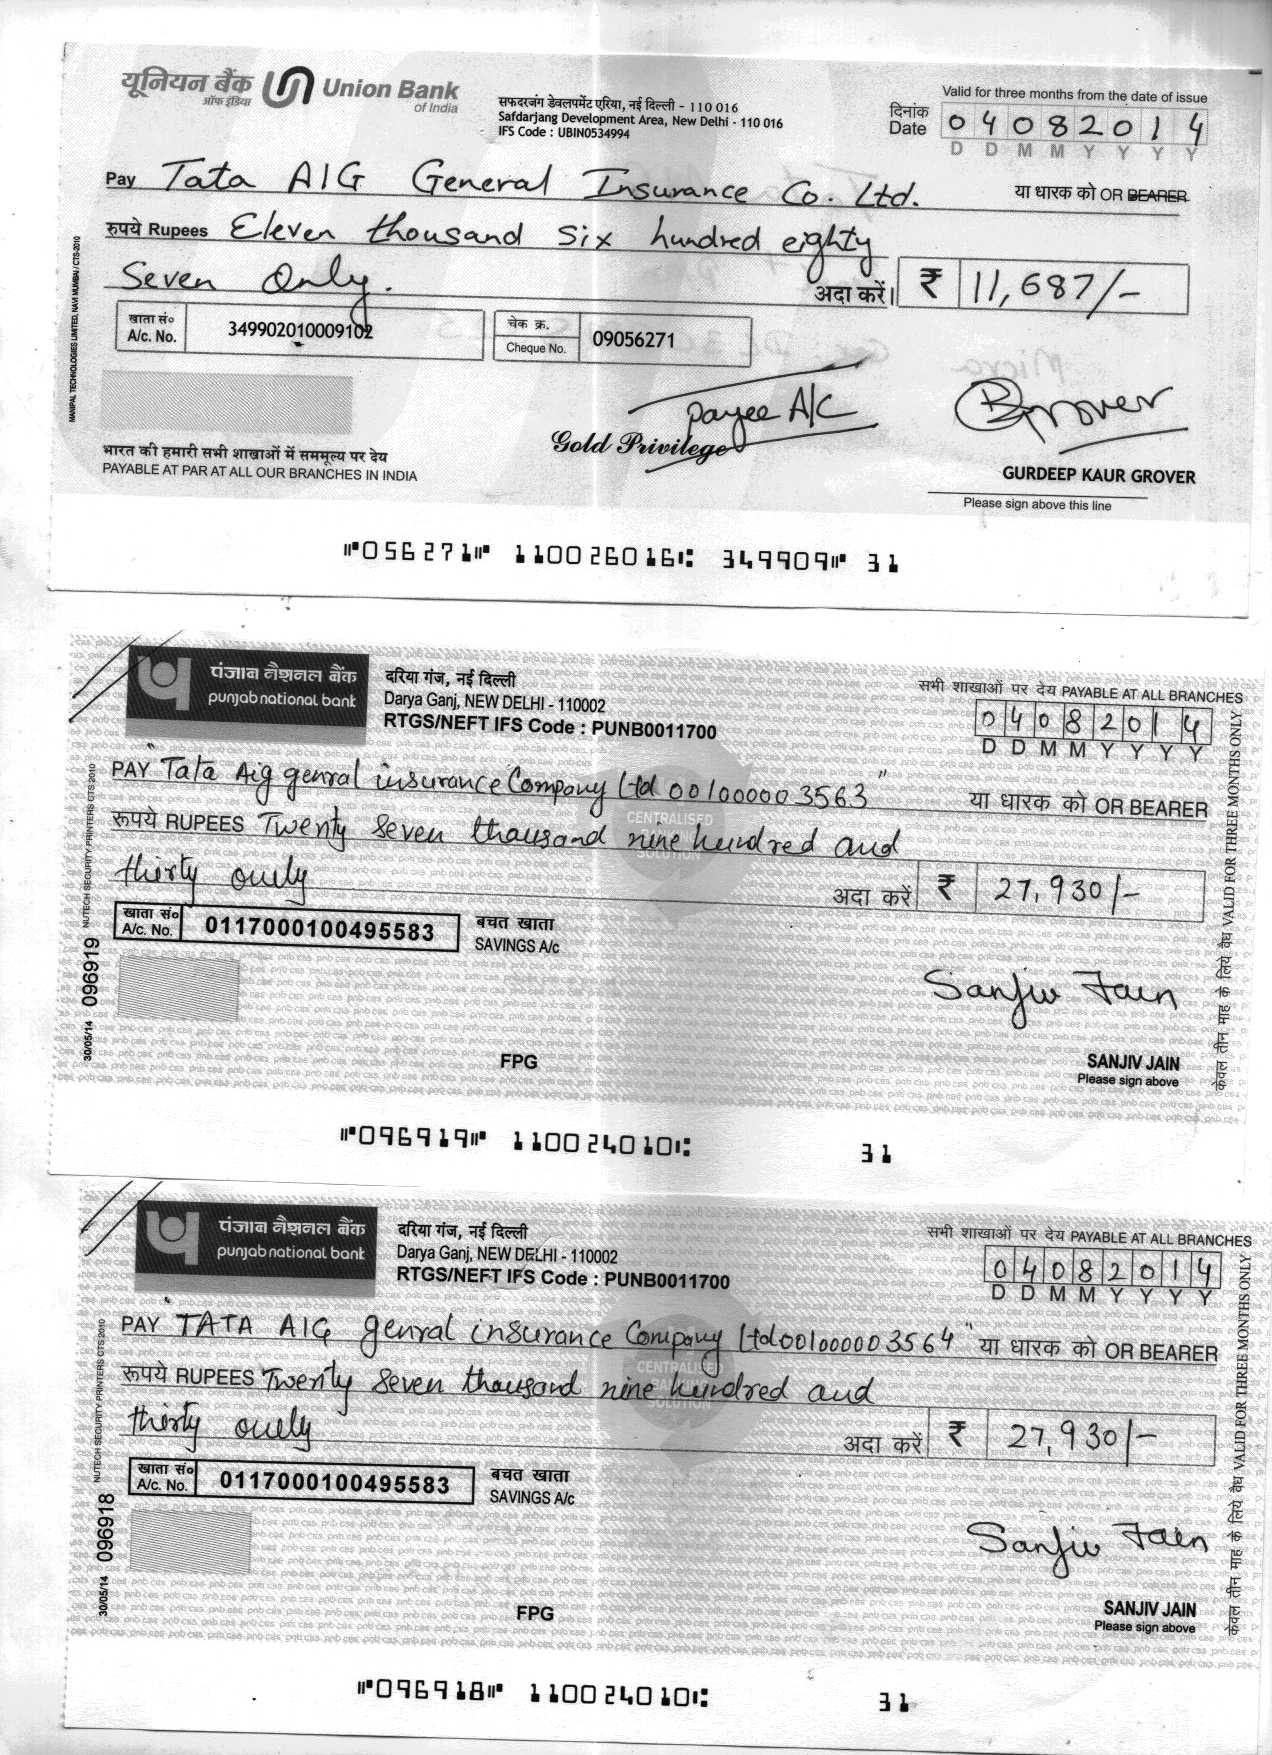 यूनियन बैंक
ऑफ इंडिया
Union Bank
of India
सफदरजंग डेवलपमेंट एरिया, नई दिल्ली - 110 016
Safdarjang Development Area, New Delhi - 110 016
IFS Code : UBIN0534994
Valid for three months from the date of issue
दिनांक
Date 04082014
D D M M Y Y Y Y
Pay Tata AIG General Insurance Co. Ltd. या धारक को OR BEARER
रुपये Rupees Eleven thousand six hundred eighty
Seven Only. अदा करें। ₹ 11,687/-
खाता सं०
A/c. No. 349902010009102
चेक क्र.
Cheque No. 09056271
MANIPAL TECHNOLOGIES LIMITED, NAVI MUMBAI / CTS-2010
payee A/C
Gold Privilege
BGrover
भारत की हमारी सभी शाखाओं में सममूल्य पर देय
PAYABLE AT PAR AT ALL OUR BRANCHES IN INDIA
GURDEEP KAUR GROVER
Please sign above this line
⑈056271⑈ 110026016⑆ 349909⑈ 31
पंजाब नैशनल बैंक
punjab national bank
दरिया गंज, नई दिल्ली
Darya Ganj, NEW DELHI - 110002
RTGS/NEFT IFS Code : PUNB0011700
सभी शाखाओं पर देय PAYABLE AT ALL BRANCHES
04082014
D D M M Y Y Y Y
PAY "Tata Aig genral insurance Company Ltd 001000003563" या धारक को OR BEARER
रूपये RUPEES Twenty Seven thousand nine hundred and
thirty only अदा करें ₹ 27,930/-
CENTRALISED
BANKING
SOLUTION
खाता सं०
A/c. No. 0117000100495583
बचत खाता
SAVINGS A/c
30/05/14 096919 NUTECH SECURITY PRINTERS CTS 2010
केवल तीन माह के लिये वैध VALID FOR THREE MONTHS ONLY
Sanjiv Jain
FPG
SANJIV JAIN
Please sign above
⑈096919⑈ 110024010⑆ 31
पंजाब नैशनल बैंक
punjab national bank
दरिया गंज, नई दिल्ली
Darya Ganj, NEW DELHI - 110002
RTGS/NEFT IFS Code : PUNB0011700
सभी शाखाओं पर देय PAYABLE AT ALL BRANCHES
04082014
D D M M Y Y Y Y
PAY "TATA AIG genral insurance Company Ltd 001000003564" या धारक को OR BEARER
रूपये RUPEES Twenty Seven thousand nine hundred and
thirty only अदा करें ₹ 27,930/-
CENTRALISED
BANKING
SOLUTION
खाता सं०
A/c. No. 0117000100495583
बचत खाता
SAVINGS A/c
30/05/14 096918 NUTECH SECURITY PRINTERS CTS 2010
केवल तीन माह के लिये वैध VALID FOR THREE MONTHS ONLY
Sanjiv Jain
FPG
SANJIV JAIN
Please sign above
⑈096918⑈ 110024010⑆ 31